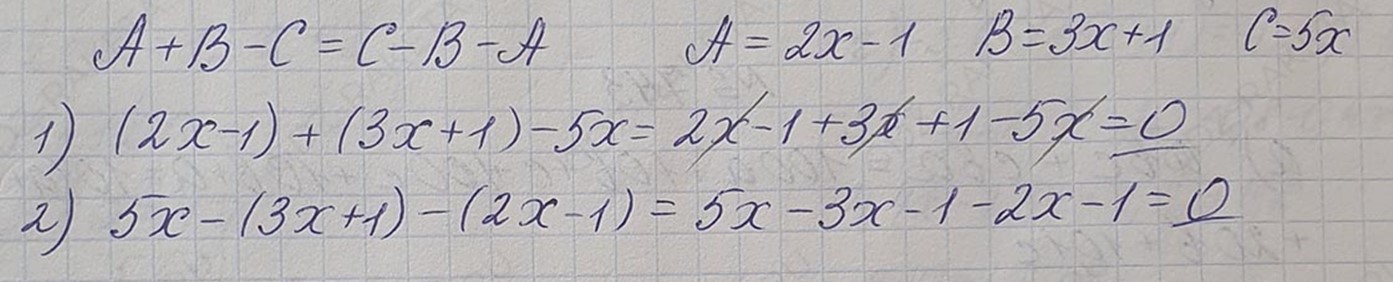 A + B - C = C - B - A A = 2x - 1 B = 3x + 1 C = 5x
1) (2x - 1) + (3x + 1) - 5x = 2x - 1 + 3x + 1 - 5x = 0
2) 5x - (3x + 1) - (2x - 1) = 5x - 3x - 1 - 2x - 1 = 0